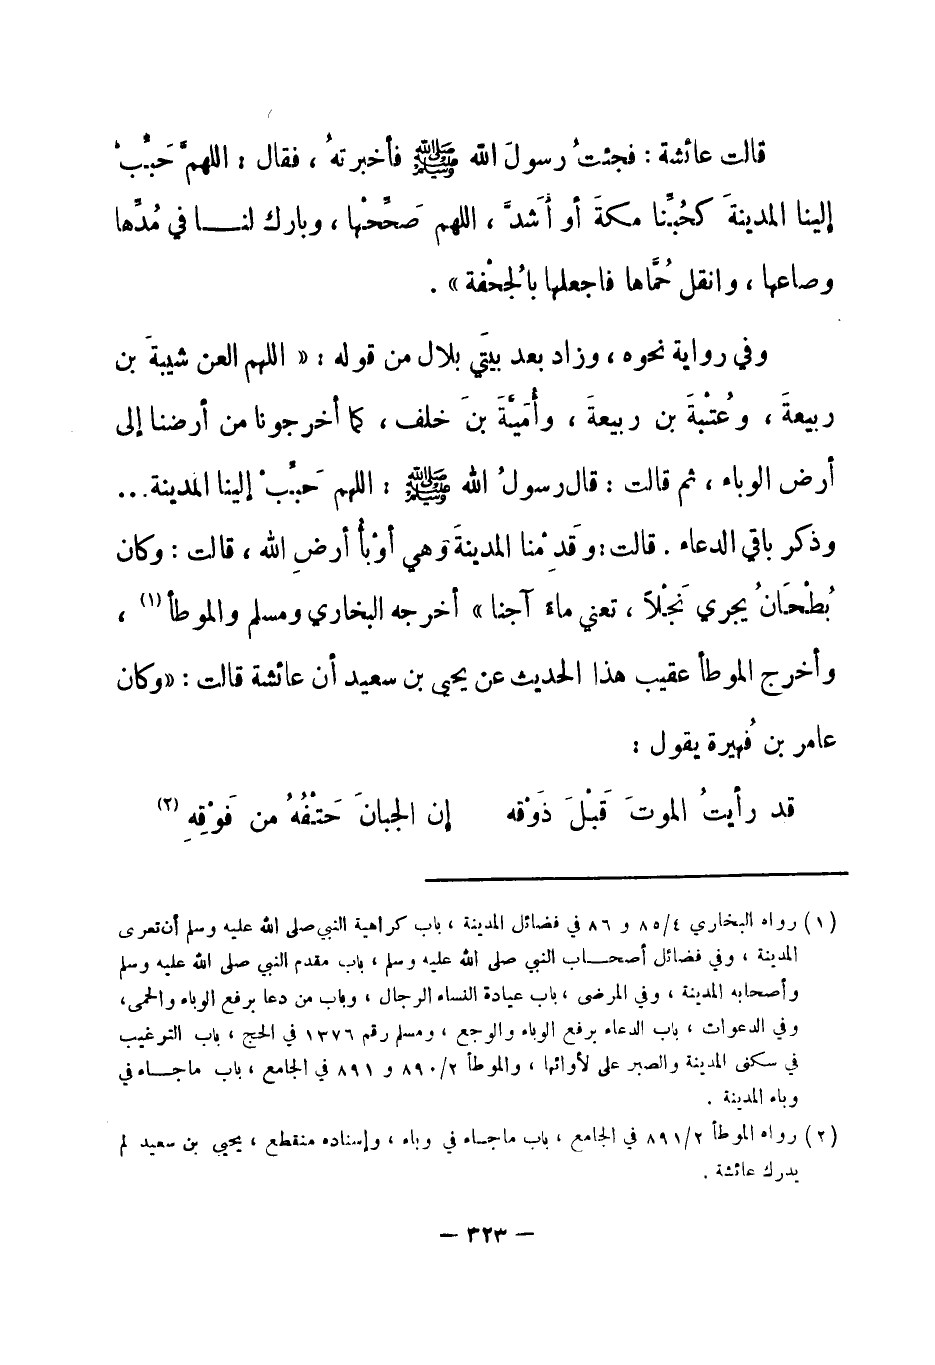 قالت عائشة : فجئتُ رسولَ الله ﷺ فأخبرتهُ ، فقال : اللهمَّ حَبِّبْ
إلينا المدينةَ كحُبِّنا مكةَ أو أَشدَّ ، اللهم صَحِّحْها ، وبارك لنا في مُدِّها
وصاعها ، وانقل حُمَّاها فاجعلها بالجُحْفة » .
وفي رواية نحوه ، وزاد بعد بيتَي بلال من قوله : « اللهم العن شيبةَ بن
ربيعةَ ، وعُتْبةَ بن ربيعةَ ، وأُمَيَّةَ بنَ خلف ، كما أخرجونا من أرضنا إلى
أرض الوباء ، ثم قالت : قال رسولُ الله ﷺ : اللهم حَبِّبْ إلينا المدينة...
وذكر باقي الدعاء . قالت : وقَدِمْنا المدينةَ وَهي أَوْبَأُ أرضِ الله ، قالت : وكان
بُطْحَانُ يجري نَجْلاً ، تعني ماءً آجنا » أخرجه البخاري ومسلم والموطأ (١) ،
وأخرج الموطأ عقيب هذا الحديث عن يحيى بن سعيد أن عائشة قالت : «وكان
عامر بن فُهيرة يقول :
قد رأيتُ الموتَ قَبْلَ ذَوْقه إن الجبانَ حَتْفُهُ من فَوْقِهِ (٢)
(١) رواه البخاري ٨٥/٤ و ٨٦ في فضائل المدينة ، باب كراهية النبي صلى الله عليه وسلم أن تعرى
المدينة ، وفي فضائل أصحاب النبي صلى الله عليه وسلم ، باب مقدم النبي صلى الله عليه وسلم
وأصحابه المدينة ، وفي المرضى ، باب عيادة النساء الرجال ، وباب من دعا برفع الوباء والحمى،
وفي الدعوات ، باب الدعاء برفع الوباء والوجع ، ومسلم رقم ١٣٧٦ في الحج ، باب الترغيب
في سكنى المدينة والصبر على لأوائها ، والموطأ ٨٩٠/٢ و ٨٩١ في الجامع ، باب ماجاء في
وباء المدينة .
(٢) رواه الموطأ ٨٩١/٢ في الجامع ، باب ماجاء في وباء ، وإسناده منقطع ، يحيى بن سعيد لم
يدرك عائشة .
— ٣٢٣ —